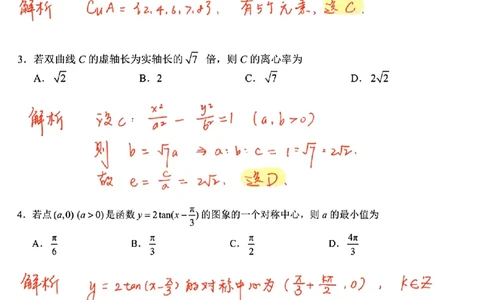 解析 CuA = {2,4,6,7,8}, 有5个元素, 选 C.
3. 若双曲线 C 的虚轴长为实轴长的 √7 倍，则 C 的离心率为
A. √2 B. 2 C. √7 D. 2√2
解析 设 C: x²/a² - y²/b² = 1 (a,b>0)
则 b = √7a ⇒ a:b:c = 1:√7:2√2.
故 e = c/a = 2√2. 选D.
4. 若点(a,0) (a>0)是函数 y=2tan(x-π/3)的图象的一个对称中心，则 a 的最小值为
A. π/6 B. π/3 C. π/2 D. 4π/3
解析 y=2tan(x-π/3) 的对称中心为 (π/3+kπ/2, 0), k∈Z